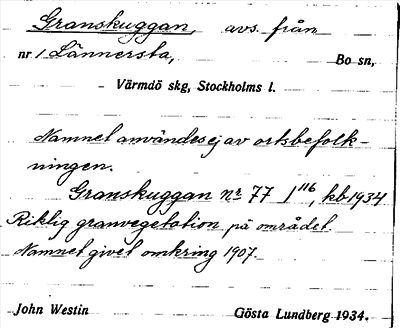 Granskuggan, avs. från
nr 1 Lännersta, Bo sn,
Värmdö skg, Stockholms l.
Namnet användes ej av ortsbefolk-
ningen.
Granskuggan nr 77 1¹¹⁶, kb 1934
Riklig granvegetation på området.
Namnet givet omkring 1907.
John Westin Gösta Lundberg 1934.